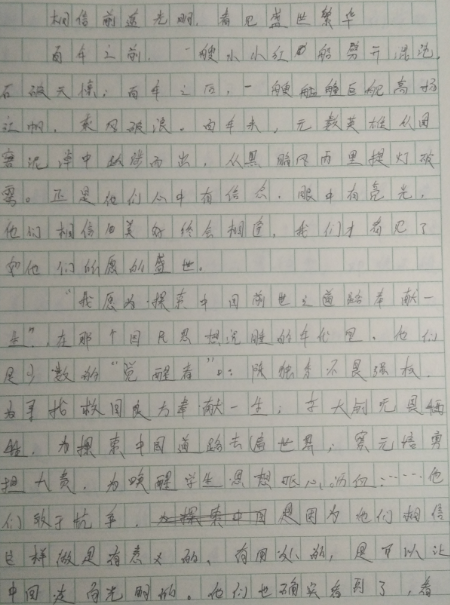 相信前途光明，看见盛世繁华
百年之前，一艘小小红船劈开混沌，
石破天惊；百年之后，一艘巍巍巨舰高扬
征帆，乘风破浪。百年来，无数英雄从困
中纵跃而出，从黑暗风雨里提灯破
雾。正是他们心中有信念，眼中有亮光，
他们相信美好终会相逢，我们才看见了
如他们所愿的盛世。
“我愿为探索中国前进之道路奉献一
生”，在那个国民思想沉睡的年代里，他们
是少数的“觉醒者”：陈独秀不畏强权，
为寻找救国良方奉献一生，李大钊无畏牺
牲，为探索中国道路去世界，蔡元培勇
担大责，为唤醒学生思想呕心沥血……他
们敢于抗争，是因为他们相信
这样做是有意义的，有用处的，是可以让
中国走向光明的。他们也确实看到了，看